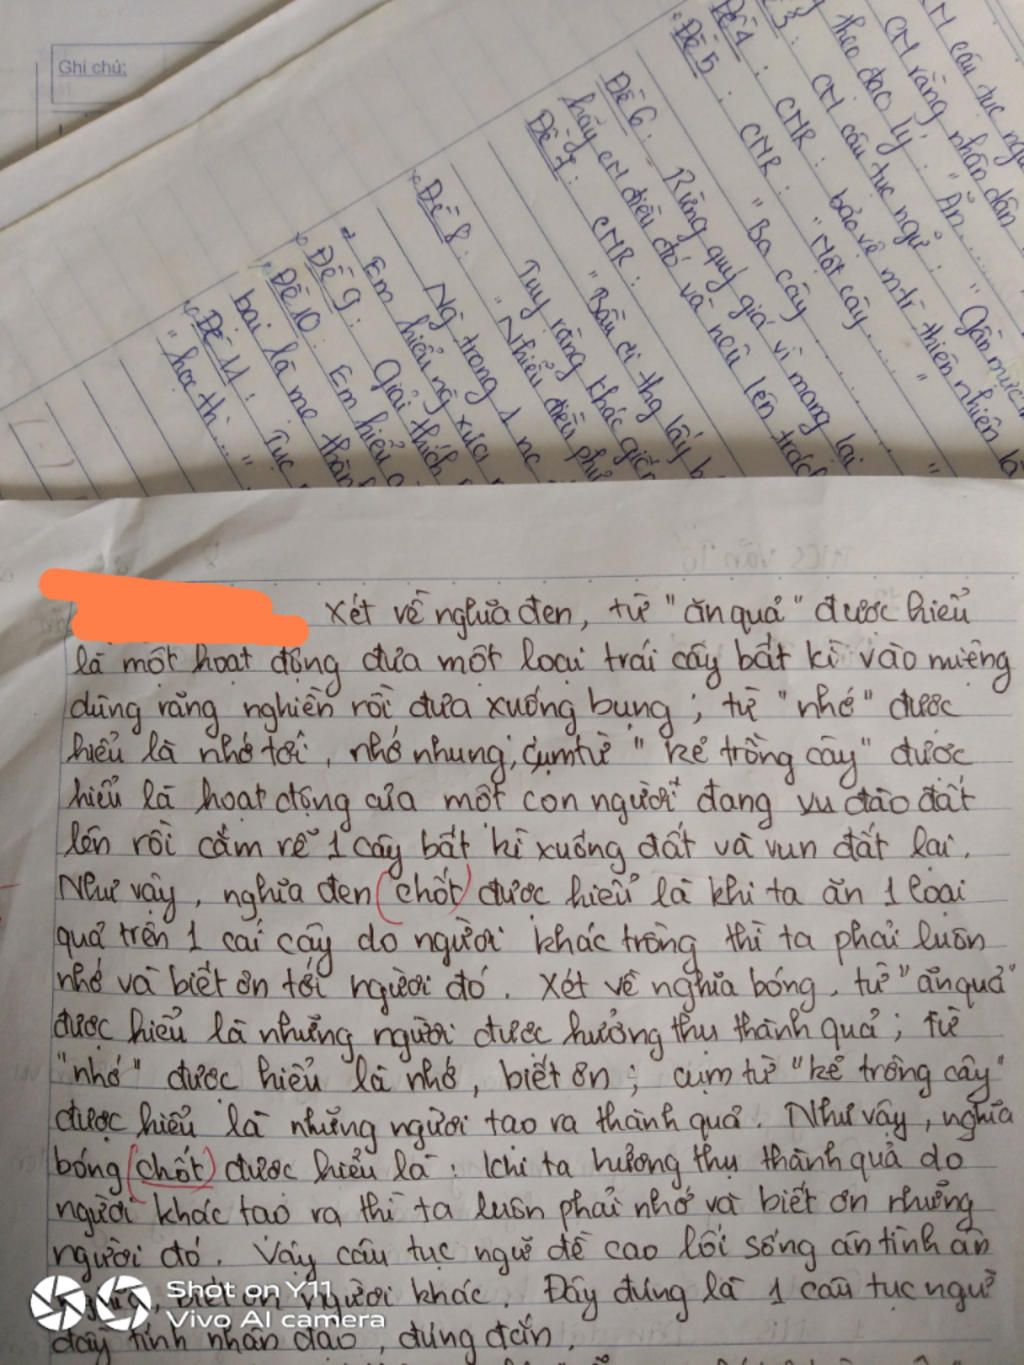 Ghi chú:
M câu tục ngữ
CM rằng nhân dân
theo đạo lý: "Ăn..... "
3: CM câu tục ngữ: "Gần mực
Đề 4: CMR: bảo vệ m.tr thiên nhiên là
Đề 5: CMR: "Một cây ....... "
"Ba cây ....... "
Đề 6: Rừng quý giá vì mang lại
hãy CM điều đó và nêu lên trách
Đề 7: CMR: "Bầu ơi thg lấy b
Tuy rằng khác giốn
Đề 8: "Nhiễu điều phủ
Ng trong 1 nc
Em hiểu ng xưa
Đề 9: Giải thích
Đề 10: Em hiểu
bại là mẹ thàn
Đề 11: Tục
"học th..."
Xét về nghĩa đen, từ "ăn quả" được hiểu
là một hoạt động đưa một loại trái cây bất kì vào miệng
dùng răng nghiền rồi đưa xuống bụng; từ "nhớ" được
hiểu là nhớ tới, nhớ nhung; cụm từ "kẻ trồng cây" được
hiểu là hoạt động của một con người đang vu đào đất
lên rồi cắm rễ 1 cây bất kì xuống đất và vun đất lại.
Như vậy, nghĩa đen (chốt) được hiểu là khi ta ăn 1 loại
quả trên 1 cái cây do người khác trồng thì ta phải luôn
nhớ và biết ơn tới người đó. Xét về nghĩa bóng, từ "ăn quả"
được hiểu là những người được hưởng thụ thành quả; từ
"nhớ" được hiểu là nhớ, biết ơn; cụm từ "kẻ trồng cây"
được hiểu là những người tạo ra thành quả. Như vậy, nghĩa
bóng (chốt) được hiểu là: khi ta hưởng thụ thành quả do
người khác tạo ra thì ta luôn phải nhớ và biết ơn những
người đó. Vậy câu tục ngữ đề cao lối sống ân tình ân
nghĩa, biết ơn người khác. Đây đúng là 1 câu tục ngữ
đầy tính nhân đạo, đúng đắn.
Shot on Y11
Vivo AI camera